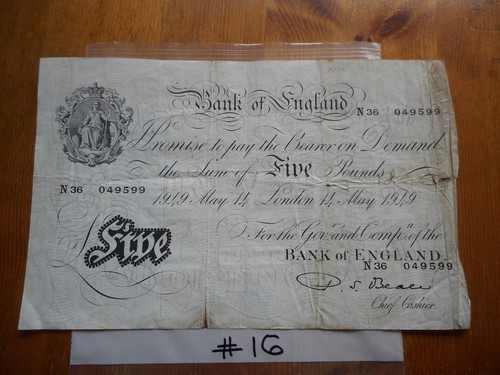 Bank of England
N36 049599
I Promise to pay the Bearer on Demand
the Sum of Five Pounds
N36 049599
1949 May 14 London 14 May 1949
For the Gov.r and Comp.a of the
BANK of ENGLAND.
N36 049599
Five
P. S. Beale
Chief Cashier.
#16